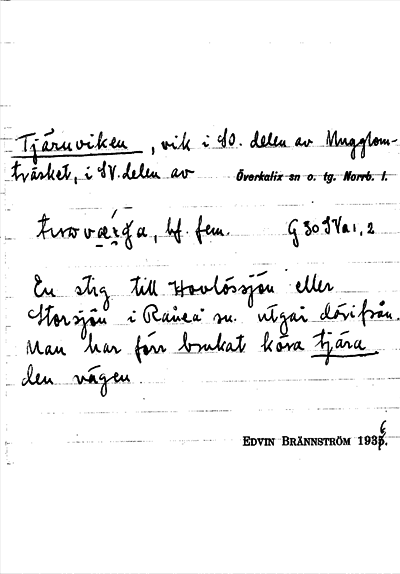 Tjäruviken, vik i SO. delen av Mugglom-
träsket, i SV. delen av Överkalix sn o. tg. Norrb. l.
bf. fem. G 30 SVa1,2
En stig till Hovlössjön eller
Storsjön i Råneå sn. utgår därifrån.
Man har förr brukat köra tjära
den vägen.
EDVIN BRÄNNSTRÖM 1936.